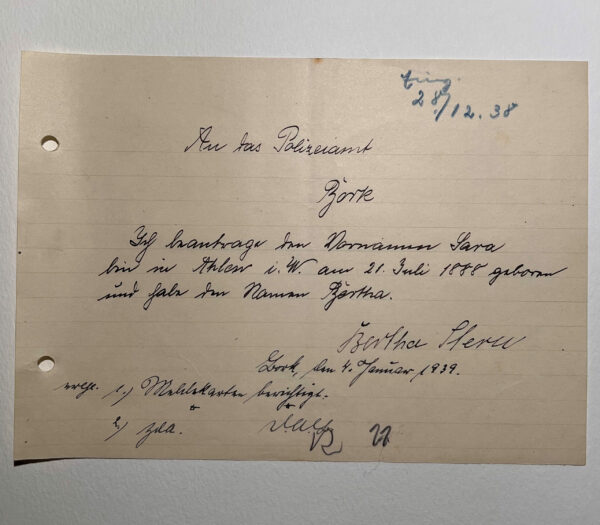 Eing.
28/12.38
An das Polizeiamt
Bork
Ich beantrage den Vornamen Sara
bin in Ahlen i.W. am 21. Juli 1888 geboren
und habe den Namen Bertha.
Bertha Stern
Bork, den 4. Januar 1939.
1.) Meldekarten berichtigt.
2.) zdA.